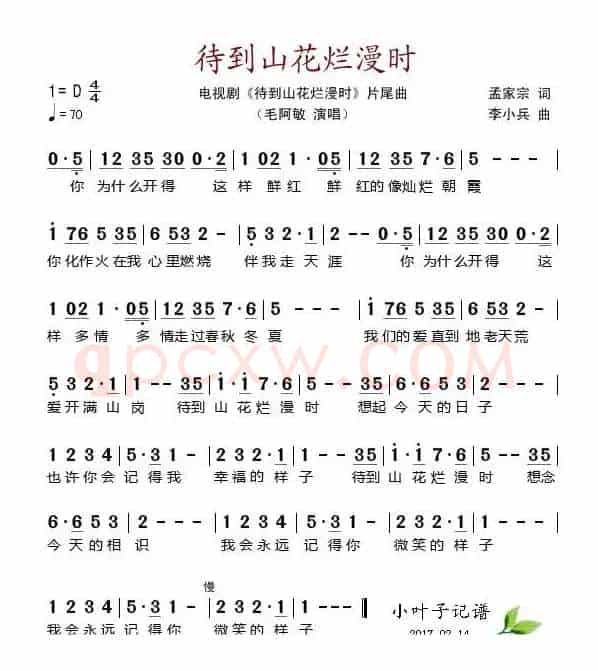 待到山花烂漫时
1= D 4/4
电视剧《待到山花烂漫时》片尾曲
孟家宗 词
♩=70
（毛阿敏 演唱）
李小兵 曲
0·5 | 12 35 30 0·2 | 1 02 1 05 | 12 35 7·6 | 5 - - - |
你 为什么开得 这样鲜红 鲜红的像灿烂朝霞
i 76 5 35 | 6 53 2 - | 5 32·1 | 2 - - 0·5 | 12 35 30 0·2 |
你化作火在我心里燃烧 伴我走天涯 你为什么开得 这
1 02 1·05 | 12 35 7·6 | 5 - - - | i 76 5 35 | 6 53 2 - |
样多情 多情走过春秋冬夏 我们的爱直到地老天荒
qpcxw.com
5 32·1 | 1 - - 35 | i·i 7·6 | 5 - - 35 | 6·6 5 3 | 2 - - - |
爱开满山岗 待到山花烂漫时 想起今天的日子
1 2 3 4 | 5·3 2 1 - | 2 3 2·1 | 1 - - 35 | i·i 7·6 | 5 - - 35 |
也许你会记得我 幸福的样子 待到山花烂漫时 想念
6·6 5 3 | 2 - - - | 1 2 3 4 | 5·3 2 1 - | 2 3 2·1 | 1 - - - |
今天的相识 我会永远记得你 微笑的样子
慢
1 2 3 4 | 5·3 2 1 - | 2 3 2·1 | 1 - - - ‖
小叶子记谱
我会永远记得你 微笑的样子
2017-02-14